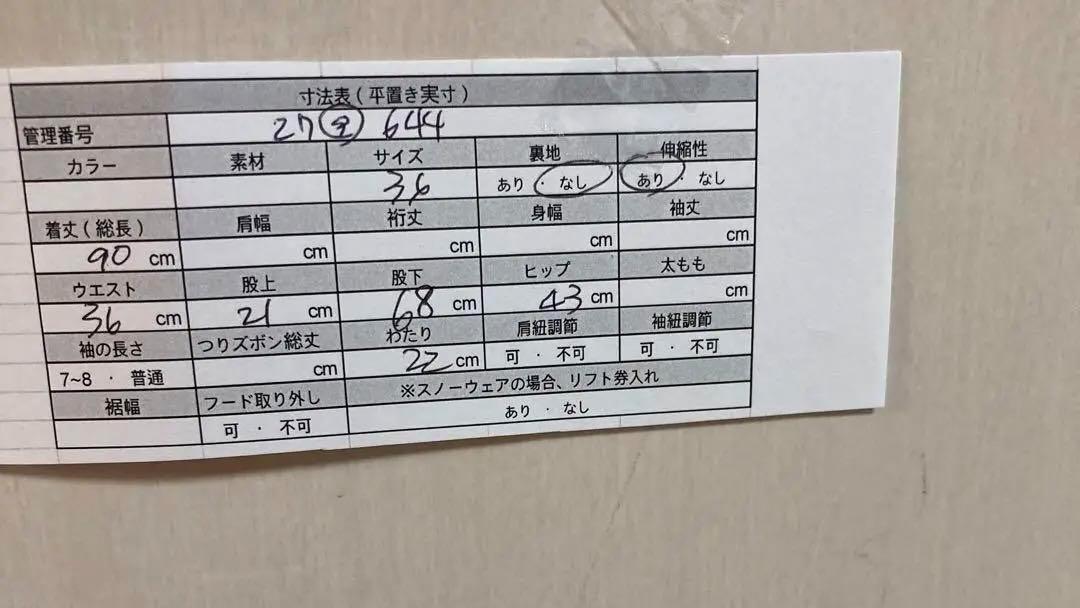 寸法表(平置き実寸)
管理番号 27 644
カラー 素材 サイズ 裏地 伸縮性
36 あり・なし あり なし
着丈(総長) 肩幅 裄丈 身幅 袖丈
90 cm cm cm cm cm
ウエスト 股上 股下 ヒップ 太もも
36 cm 21 cm 68 cm 43 cm cm
袖の長さ つりズボン総丈 わたり 肩紐調節 袖紐調節
7~8・普通 cm 22 cm 可・不可 可・不可
裾幅 フード取り外し ※スノーウェアの場合、リフト券入れ
可・不可 あり・なし